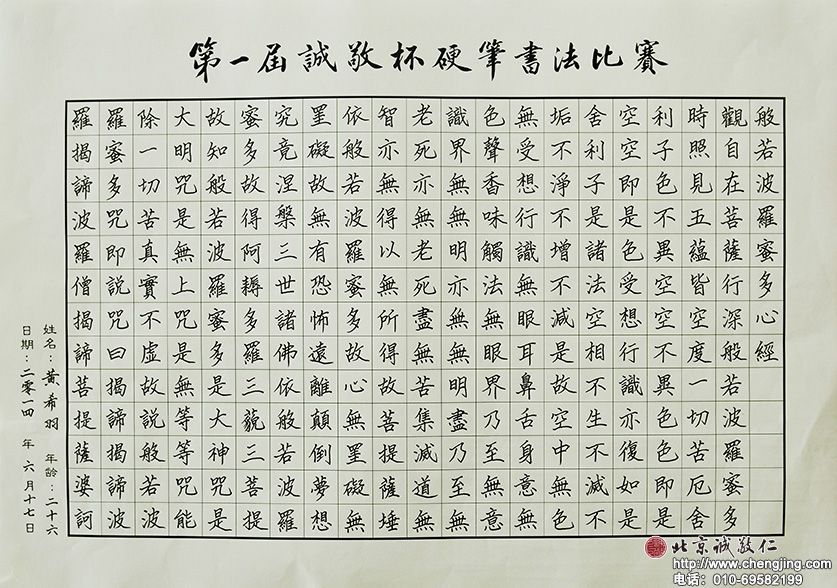 第一屆誠敬杯硬筆書法比賽
般若波羅蜜多心經
觀自在菩薩行深般若波羅蜜多
時照見五蘊皆空度一切苦厄舍
利子色不異空空不異色色即是
空空即是色受想行識亦復如是
舍利子是諸法空相不生不滅不
垢不淨不增不減是故空中無色
無受想行識無眼耳鼻舌身意無
色聲香味觸法無眼界乃至無意
識界無無明亦無無明盡乃至無
老死亦無老死盡無苦集滅道無
智亦無得以無所得故菩提薩埵
依般若波羅蜜多故心無罣礙無
罣礙故無有恐怖遠離顛倒夢想
究竟涅槃三世諸佛依般若波羅
蜜多故得阿耨多羅三藐三菩提
故知般若波羅蜜多是大神咒是
大明咒是無上咒是無等等咒能
除一切苦真實不虛故說般若波
羅蜜多咒即說咒曰揭諦揭諦波
羅揭諦波羅僧揭諦菩提薩婆訶
姓名：黃希羽 年龄：二十六
日期：二零一四 年 六月十七日
北京誠敬仁
http://www.chengjing.com
电话：010-69582199